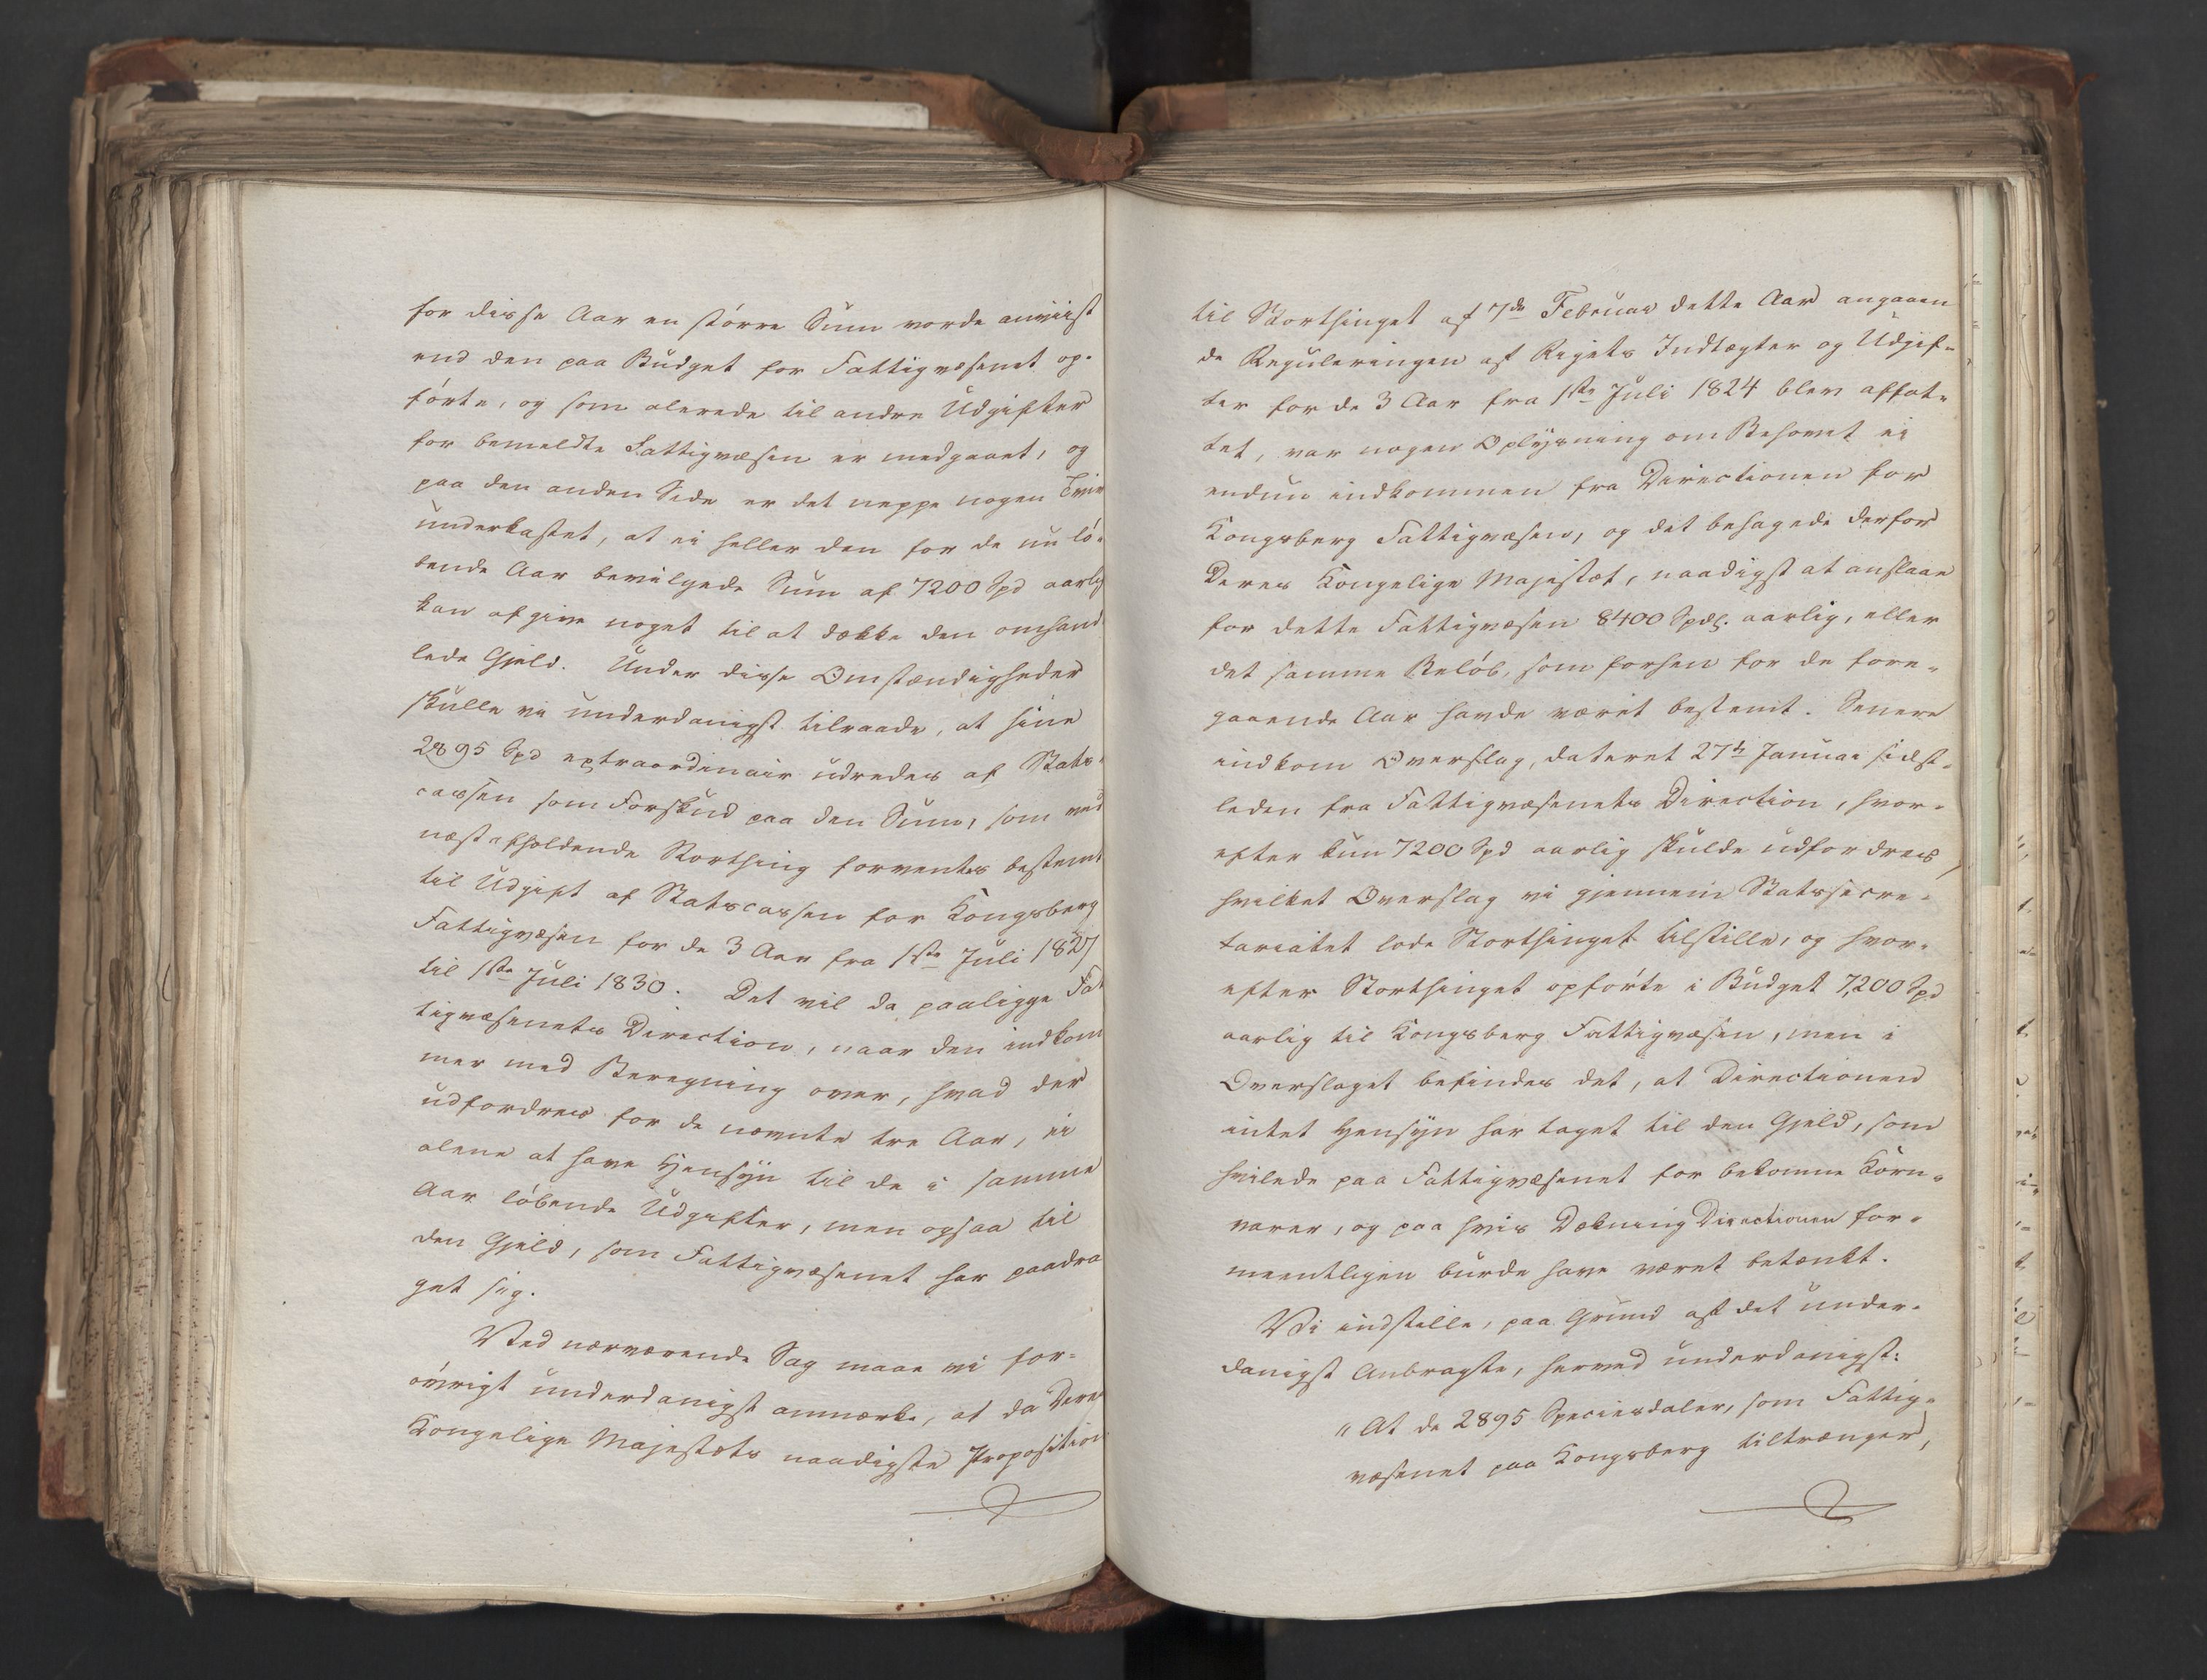 for disse Aar en større Sum vorde anviist
end den paa Budget for Fattigvæsenet op-
førte, og som allerede til andre Udgifter
for bemeldte Fattigvæsen er medgaaet, og
paa den anden Side er det neppe nogen Tvivl
underkastet, at ei heller den for de nu lø-
bende Aar bevilgede Sum af 7200 Spd aarlig
kan afgive noget til at dække den omhand-
lede Gjeld. Under disse Omstændigheder
skulle vi underdanigst tilraade, at hine
2895 Spd extraordinair udredes af Stats-
cassen som Forskud paa den Sum, som ved
næstafholdende Storthing forventes bestemt
til Udgift af Statscassen for Kongsberg
Fattigvæsen for de 3 Aar fra 1ste Juli 1827
til 1ste Juli 1830. Det vil da paaligge Fat-
tigvæsenets Direction, naar den indkom-
mer med Beregning over, hvad der
udfordres for de nævnte tre Aar, ei
alene at have Hensyn til de i samme
Aar løbende Udgifter, men ogsaa til
den Gjeld, som Fattigvæsenet har paadra-
get sig.
Ved nærværende Sag maae vi for-
øvrigt underdanigst anmærke, at da Deres
Kongelige Majestæts naadigste Proposition
til Storthinget af 7de Februar dette Aar angaaen
de Reguleringen af Rigets Indtægter og Udgif-
ter for de 3 Aar fra 1ste Juli 1824 blev affat-
tet, var nogen Oplysning om Behovet ei
endnu indkommen fra Directionen for
Kongsberg Fattigvæsen, og det behagede derfor
Deres Kongelige Majestæt, naadigst at anslaae
for dette Fattigvæsen 8400 Spdl. aarlig, eller
det samme Beløb, som forhen for de fore-
gaaende Aar havde været bestemt. Senere
indkom Overslag, dateret 27de Januar sidst-
leden fra Fattigvæsenets Direction, hvor-
efter kun 7200 Spd aarlig skulde udfordres,
hvilket Overslag vi gjennem Statssecre-
tariatet lode Storthinget tilstille, og hvor-
efter Storthinget opførte i Budget 7,200 Spd
aarlig til Kongsberg Fattigvæsen, men i
Overslaget befindes det, at Directionen
intet Hensyn har taget til den Gjeld, som
hvilede paa Fattigvæsenet for bekomne Korn-
varer, og paa hvis Dækning Directionen for-
meentligen burde have været betænkt.
Vi indstille, paa Grund af det under-
danigst Anbragte, herved underdanigst:
"At de 2895 Speciesdaler, som Fattig-
væsenet paa Kongsberg tiltrænger,